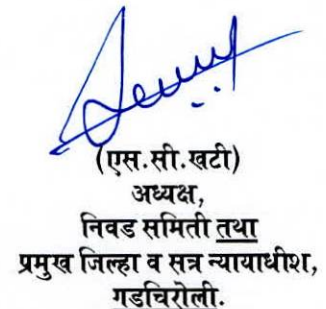 (एस.सी.खटी)
अध्यक्ष,
निवड समिती तथा
प्रमुख जिल्हा व सत्र न्यायाधीश,
गडचिरोली.